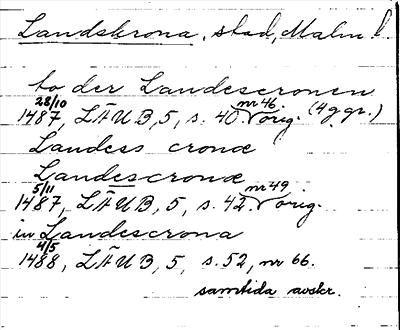 Landskrona, stad, Malm. l
to der Landescronen
28/10 1487, LÄUB, 5, s. 40. nr 46. orig. (4 ggr.)
Landess cronæ
Landescronæ
5/11 1487, LÄUB, 5, s. 42. nr 49. orig.
in Landescrona
4/5 1488, LÄUB, 5, s. 52, nr 66.
samtida avskr.